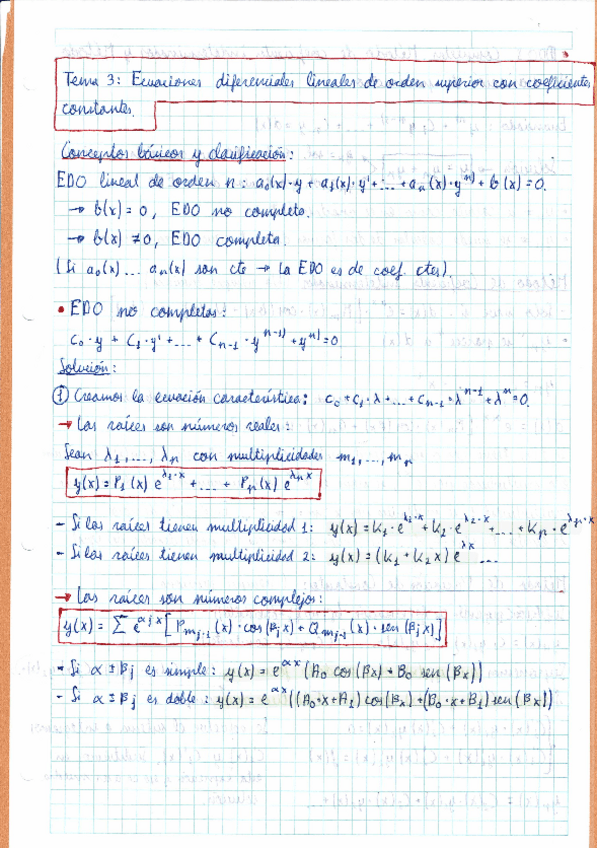 Tema 3: Ecuaciones diferenciales lineales de orden superior con coeficientes
constantes.
Conceptos básicos y clasificación:
EDO lineal de orden n: a₀(x)·y + a₁(x)·y' + ... + aₙ(x)·yⁿ⁾ + b(x) = 0.
→ b(x) = 0, EDO no completa.
→ b(x) ≠ 0, EDO completa.
(Si a₀(x)... aₙ(x) son cte → la EDO es de coef. ctes).
• EDO no completas:
c₀·y + c₁·y' + ... + cₙ₋₁·yⁿ⁻¹⁾ + yⁿ⁾ = 0
Solución:
① Creamos la ecuación característica: c₀ + c₁·λ + ... + cₙ₋₁·λⁿ⁻¹ + λⁿ = 0.
→ Las raíces son números reales:
Sean λ₁, ..., λₚ con multiplicidades m₁, ..., mₚ
y(x) = P₁(x) e^{λ₁·x} + ... + Pₚ(x) e^{λₚ x}
- Si las raíces tienen multiplicidad 1: y(x) = K₁·e^{λ₁·x} + K₂·e^{λ₂·x} + ... + Kₚ·e^{λₚ·x}
- Si las raíces tienen multiplicidad 2: y(x) = (K₁ + K₂x) e^{λx} ...
→ Las raíces son números complejos:
y(x) = Σ e^{αⱼx} [P_{mⱼ₋₁}(x)·cos(βⱼx) + Q_{mⱼ₋₁}(x)·sen(βⱼx)]
- Si α ± βj es simple: y(x) = e^{αx} (A₀ cos(βx) + B₀ sen(βx))
- Si α ± βj es doble: y(x) = e^{αx} ((A₀·x + A₁) cos(βx) + (B₀·x + B₁) sen(βx))